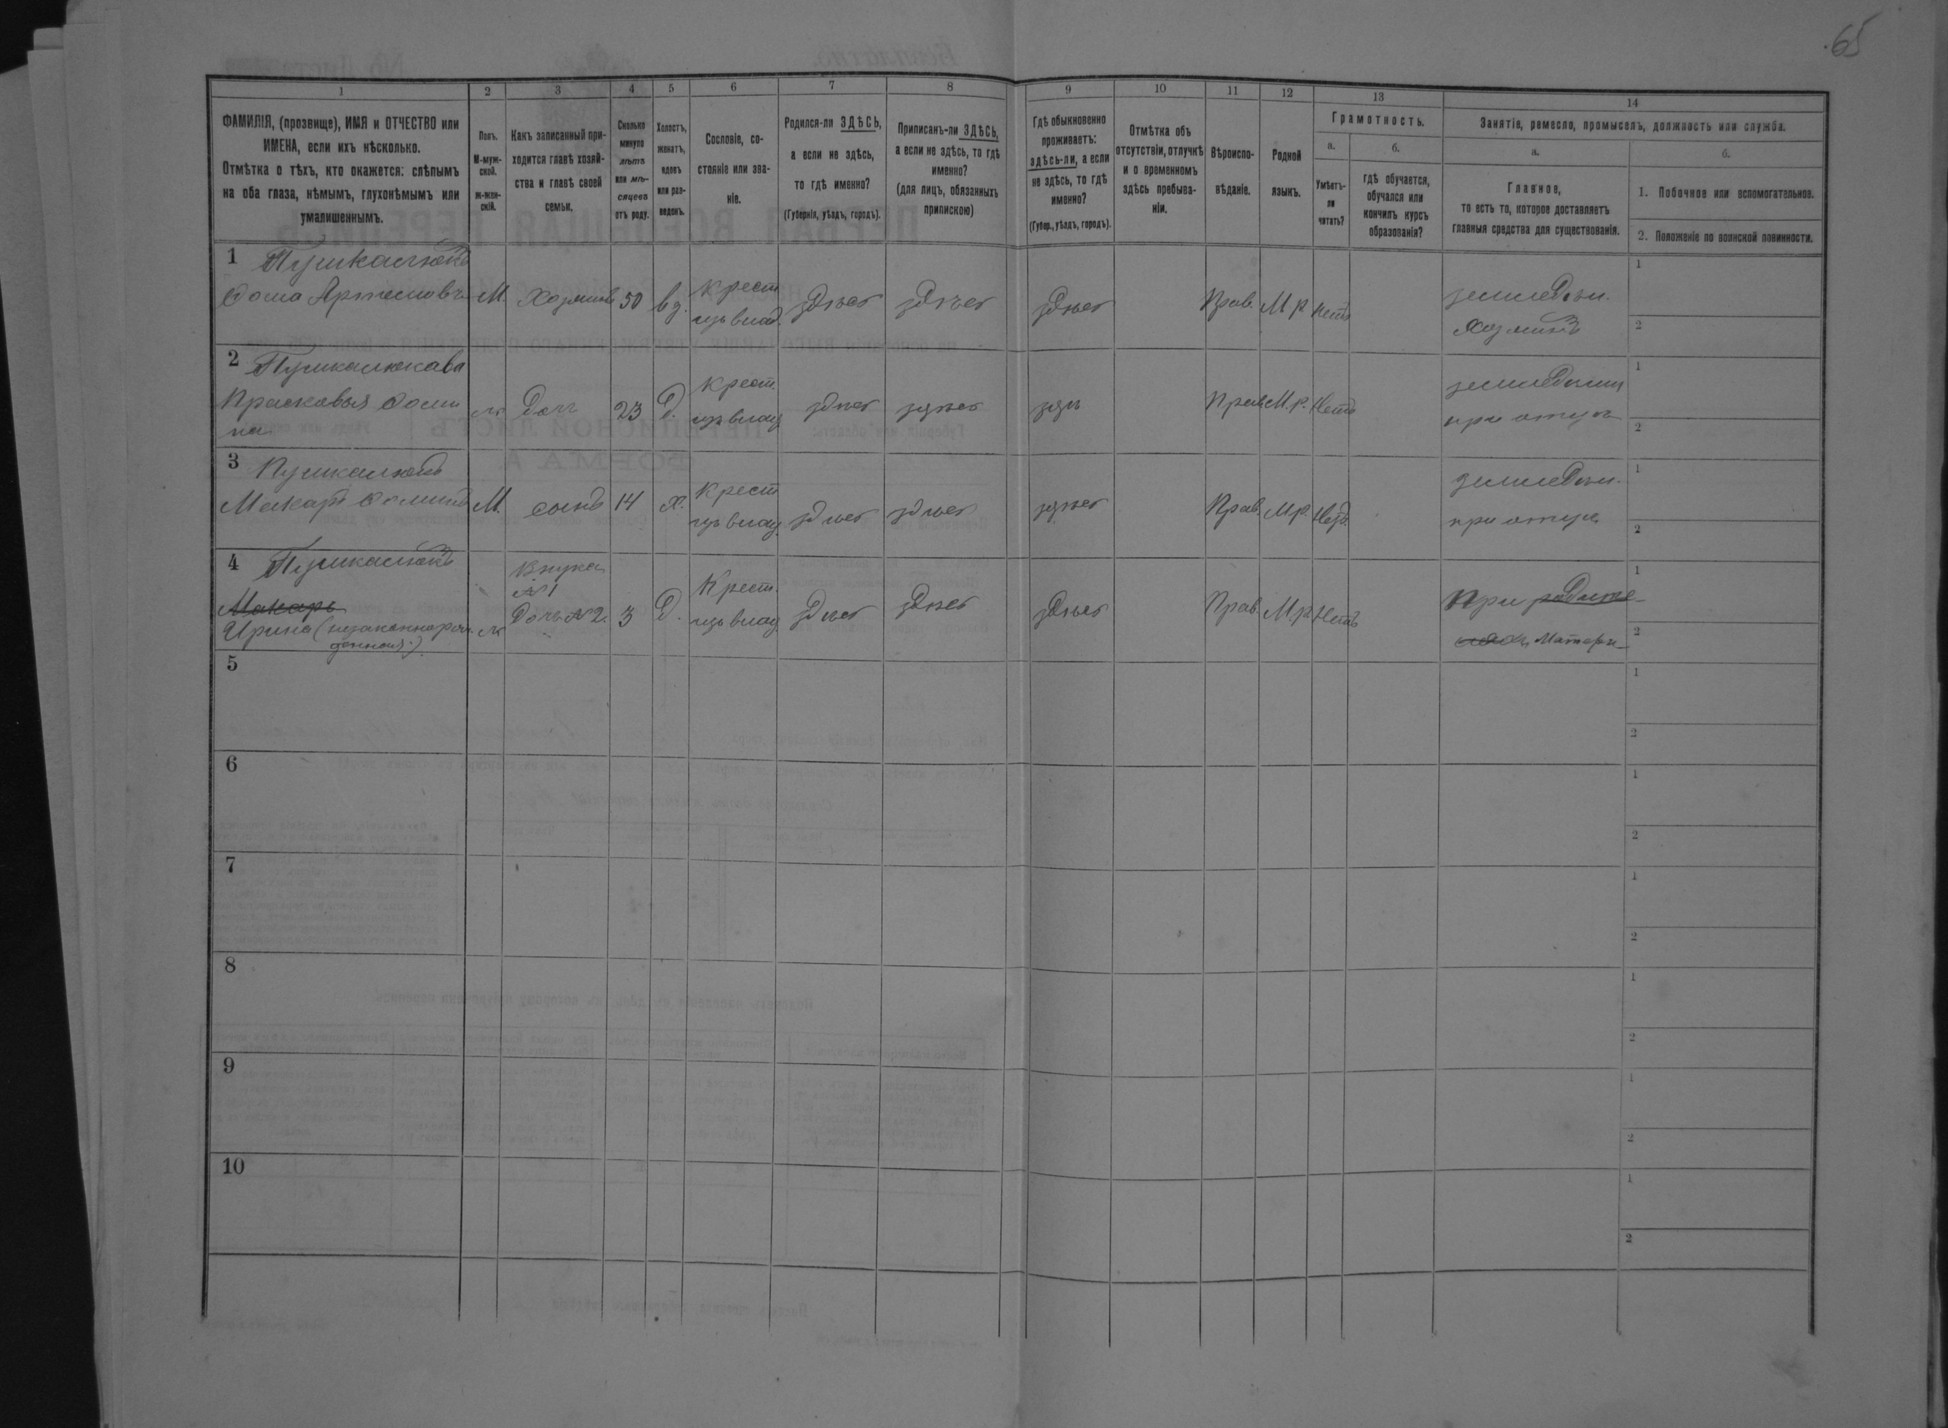 65
1
2
3
4
5
6
7
8
9
10
11
12
13
14
ФАМИЛІЯ, (прозвище), ИМЯ и ОТЧЕСТВО или
ИМЕНА, если ихъ нѣсколько.
Отмѣтка о тѣхъ, кто окажется: слѣпымъ
на оба глаза, нѣмымъ, глухонѣмымъ или
умалишеннымъ.
Полъ.
М-муж-
ской.
ж-жен-
скій.
Какъ записанный при-
ходится главѣ хозяй-
ства и главѣ своей
семьи.
Сколько
минуло
лѣтъ
или мѣ-
сяцевъ
отъ роду.
Холостъ,
женатъ,
вдовъ
или раз-
веденъ.
Сословіе, со-
стояніе или зва-
ніе.
Родился-ли ЗДѢСЬ,
а если не здѣсь,
то гдѣ именно?
(Губернія, уѣздъ, городъ).
Приписанъ-ли ЗДѢСЬ,
а если не здѣсь, то гдѣ
именно?
(для лицъ, обязанныхъ
припискою)
Гдѣ обыкновенно
проживаетъ:
здѣсь-ли, а если
не здѣсь, то гдѣ
именно?
(Губер., уѣздъ, городъ).
Отмѣтка объ
отсутствіи, отлучкѣ
и о временномъ
здѣсь пребыва-
ніи.
Вѣроиспо-
вѣданіе.
Родной
языкъ.
Грамотность.
а.
б.
Умѣетъ-
ли
читать?
гдѣ обучается,
обучался или
кончилъ курсъ
образованія?
Занятіе, ремесло, промыселъ, должность или служба.
а.
б.
Главное,
то есть то, которое доставляетъ
главныя средства для существованія.
1. Побочное или вспомогательное.
2. Положеніе по воинской повинности.
1
Ѳома Артемовъ М Хозяинъ 50 вд. Крест. здѣсь здѣсь здѣсь Прав. М.р. Нетъ
Хозяинъ
1
2
2
Прасковья Ѳоми
на ж Дочь 23 Д. Крест. здѣсь здѣсь Прав. М.р. Нетъ
при отцѣ
1
2
3
Макаръ Ѳоминъ М сынъ 14 х. Крест здѣсь здѣсь здѣсь Прав. М.р. Нетъ
при отцѣ
1
2
4
Внука
№ 1
Макаръ
Ирина (незаконнорож
денная) ж Дочь № 2. 3 Д. Крест. здѣсь здѣсь здѣсь Прав. М.р. Нетъ
При
Матери
1
2
5
1
2
6
1
2
7
1
2
8
1
2
9
1
2
10
1
2